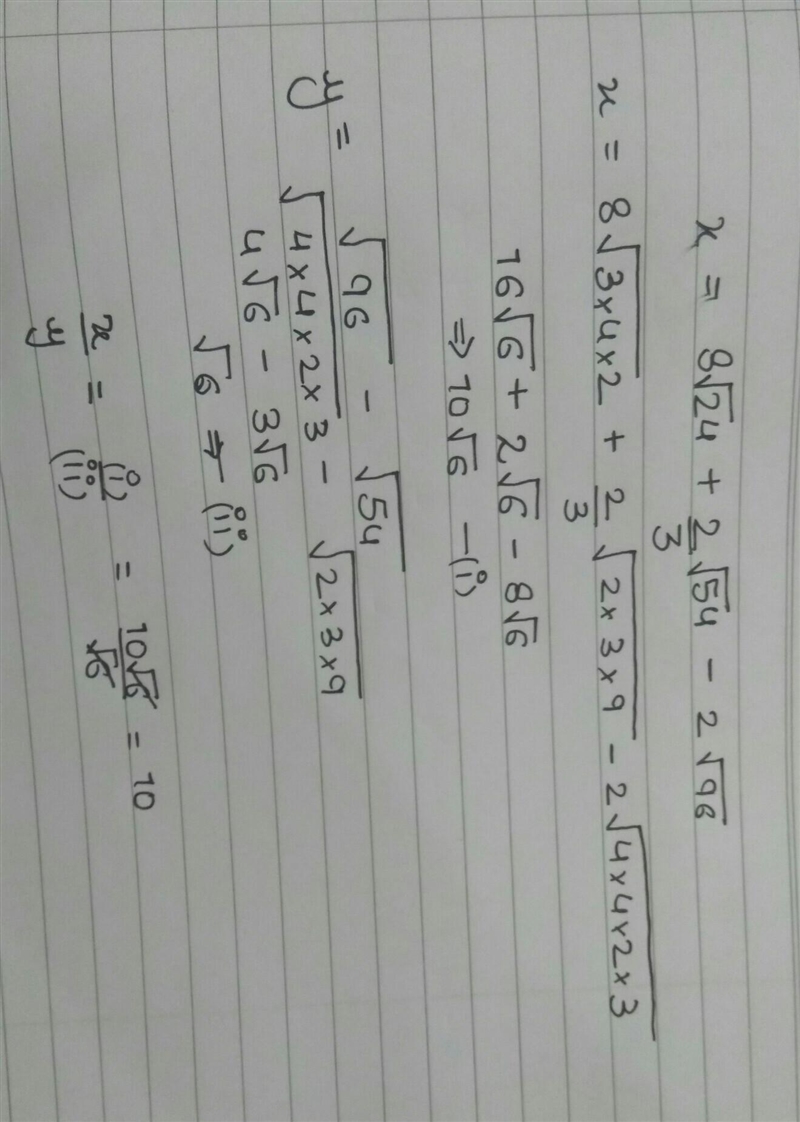 x = 8√24 + 2/3 √54 - 2√96
x = 8√3×4×2 + 2/3 √2×3×9 - 2√4×4×2×3
16√6 + 2√6 - 8√6
⇒ 10√6 - (i)
y = √96 - √54
√4×4×2×3 - √2×3×9
4√6 - 3√6
√6 ⇒ (ii)
x/y = (i)/(ii) = 10√6/√6 = 10